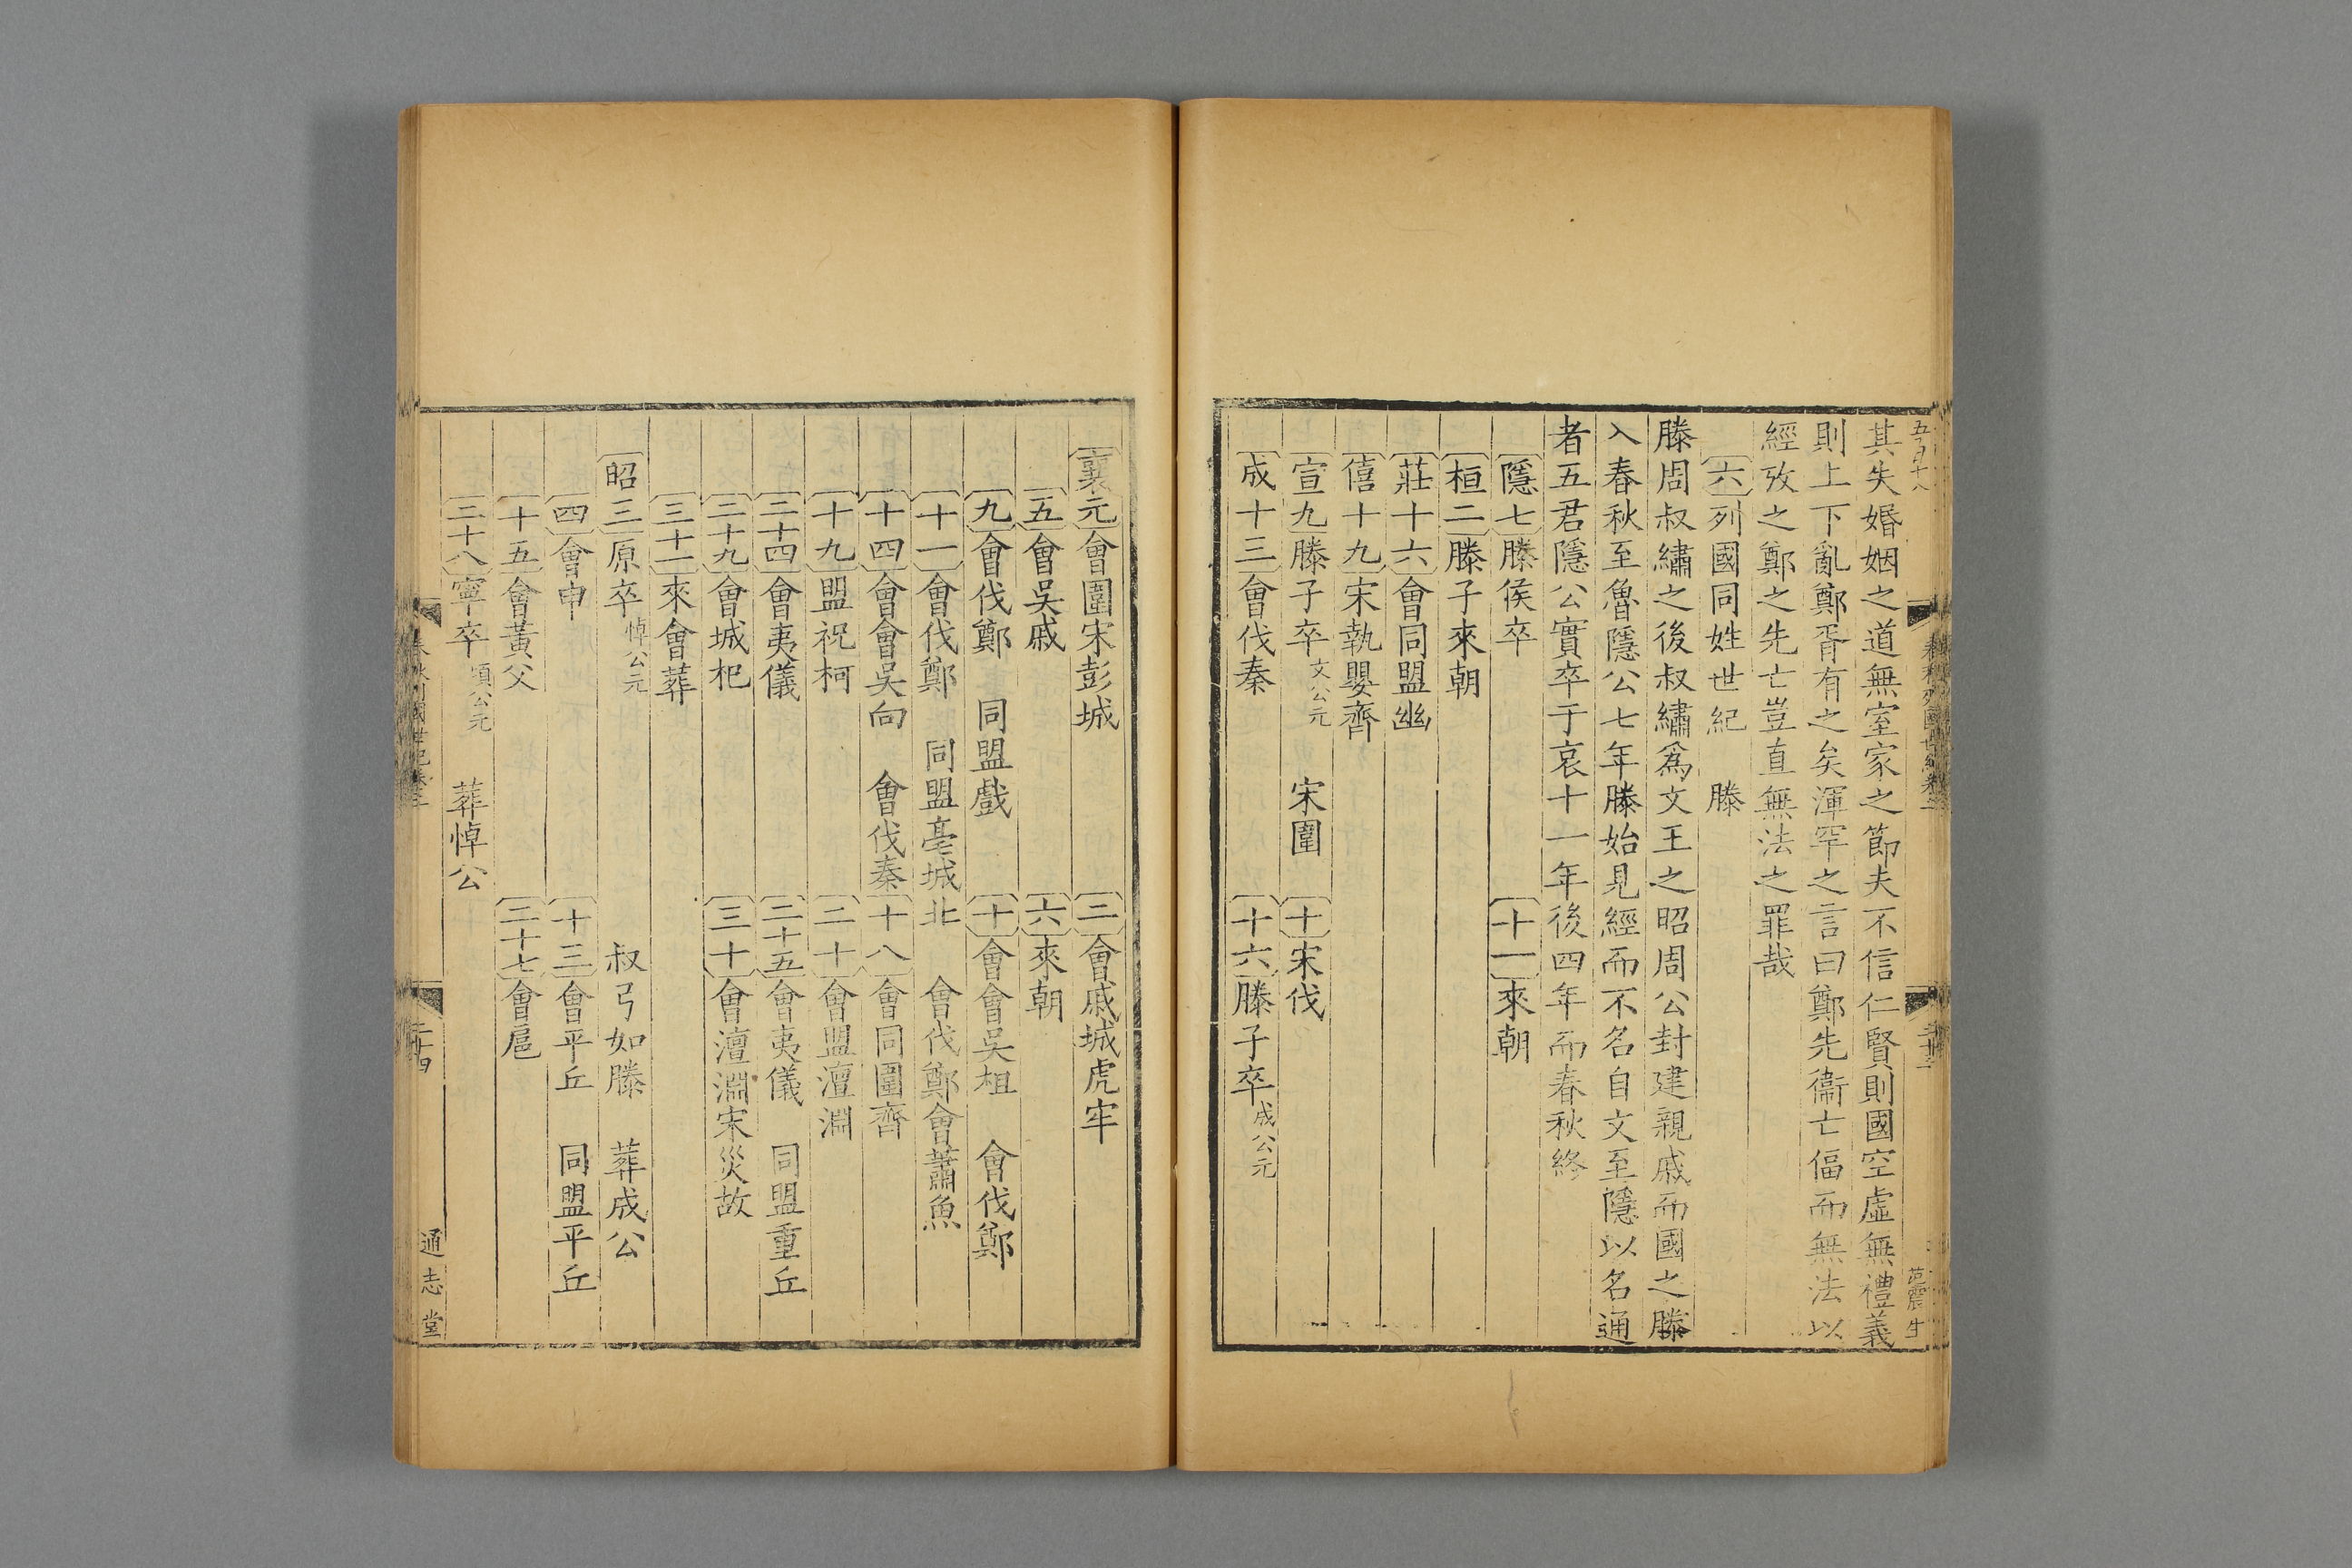 五百十八
其失婚姻之道無室家之節夫不信仁賢則國空虛無禮義
則上下亂鄭胥有之矣渾罕之言曰鄭先衞亡偪而無法以
經攷之鄭之先亡豈直無法之罪哉
六列國同姓世紀 滕
滕周叔繡之後叔繡為文王之昭周公封建親戚而國之滕
入春秋至魯隱公七年滕始見經而不名自文至隱以名通
者五君隱公實卒于哀十一年後四年而春秋終
隱七滕侯卒 十一來朝
桓二滕子來朝
莊十六會同盟幽
僖十九宋執嬰齊
宣九滕子卒文公元 宋圍 十宋伐
成十三會伐秦 十六滕子卒成公元
襄元會圍宋彭城 二會戚城虎牢
五會吳戚 六來朝
九會伐鄭 同盟戲 十會會吳柤 會伐鄭
十一會伐鄭 同盟亳城北 會伐鄭會蕭魚
十四會會吳向 會伐秦 十八會同圍齊
十九盟祝柯 二十會盟澶淵
二十四會夷儀 二十五會夷儀 同盟重丘
二十九會城杞 三十會澶淵宋災故
三十一來會葬
昭三原卒悼公元 叔弓如滕 葬成公
四會申 十三會平丘 同盟平丘
十五會黃父 二十七會扈
二十八寧卒頃公元 葬悼公
二十四
通志堂